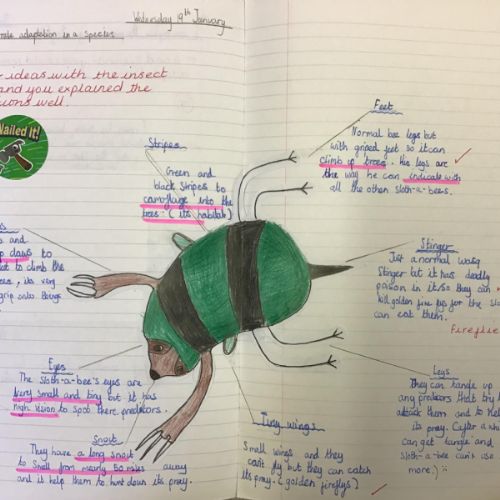 Wednesday 9th January
rate adaptation in a species
ideas with the insect
and you explained the
ions well.
Nailed It!
Feet
Normal bee legs but
with griped feet so it can
climb up trees. His legs are
the way he can indicate with
all the other sloth-a-bees.
Stripes
Green and
black stripes to
camoflage into the
trees. (its habitat)
s and
p claws to
to climb the
es, its very
grip onto things
Stinger
Just a normal wasq
Stinger but it has deadly
poison in it so they can
kill golden fire flys for the slo
can eat them.
Fireflie
Eyes
The sloth-a-bee's eyes are
Very small and tiny but it has
nigh vision to spot there predators.
Snout
They have a long snout
to Smell from nearly 50 miles away
and it help them to hunt down its prey.
Tiny wings
Small wings and they
can't fly but they can catch
its prey. (golden fireflys)
Legs
They can tangle up
any preators that try t
attack them and to
its prey. (after a wh
can get tangle and
sloth-a-bee can't use
more.)